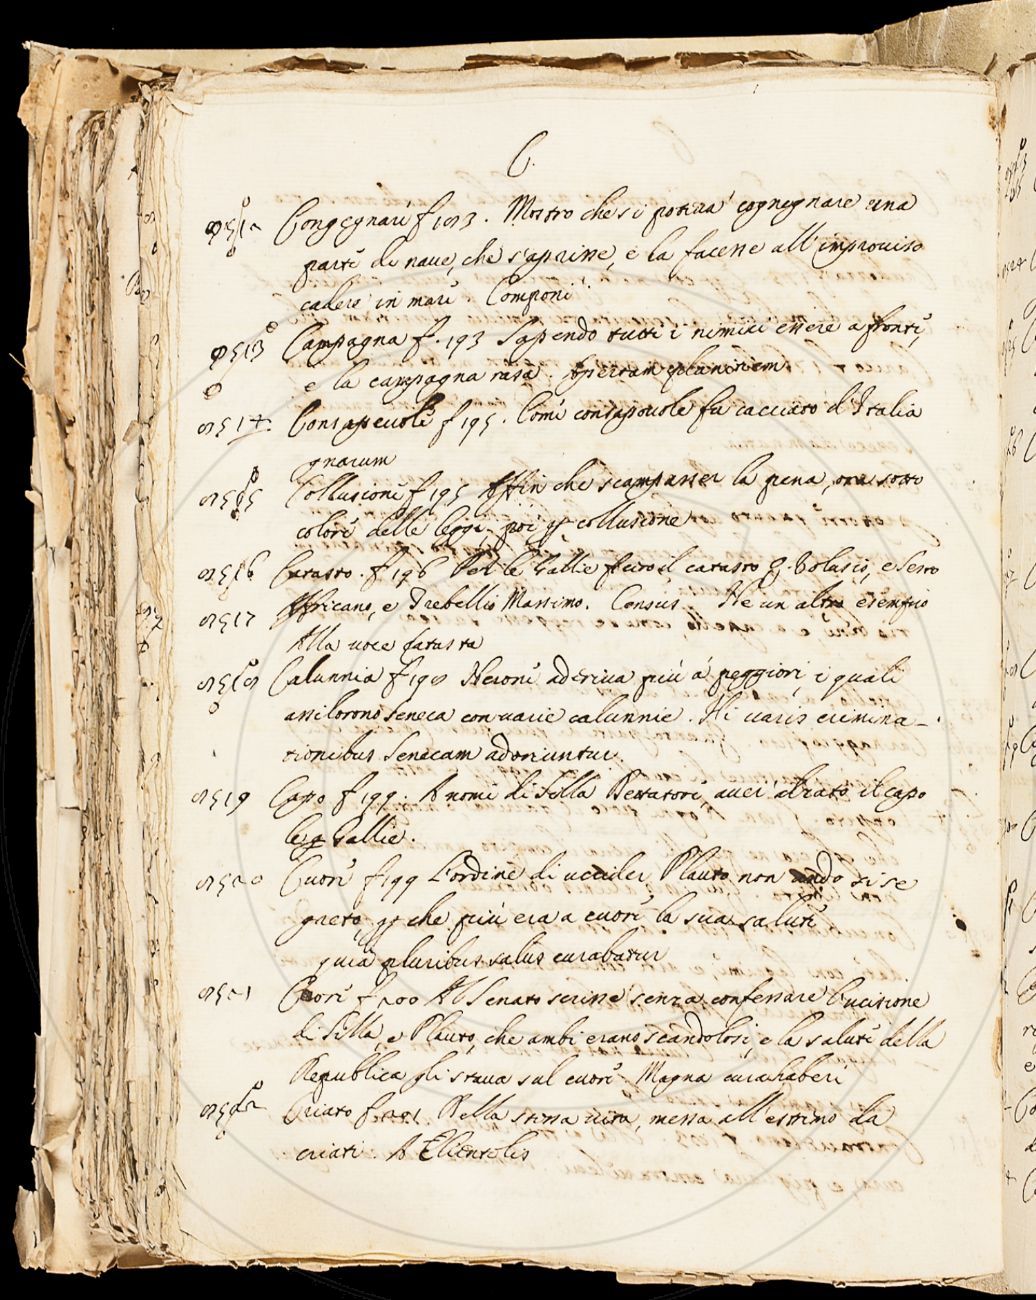 C.
Congegnare f 193. Mostro che si poteva congegnare una
parte di nave, che s'aprisse, e la facesse all'improviso
cadere in mare Componi
Campagna f. 193 Sapendo tutti i nimici essere a fronte,
e la campagna rasa. Apertam planitiem
Consapevole f 195. Come consapevole fu cacciato d'Italia
gnarum
Collusione f 195 Affin che scampasser la pena, ora sotto
colore delle leggi, poi p collusione
Catasto. f 196 Per le Gallie fecero il catasto Q. Volusio, e Sesto
Africano, e Trebellio Massimo. Census. Ve un altro esempio
Alla voce
Calunnia f 198 Nerone aderiva più a' peggiori, i quali
assilorono Seneca con varie calunnie. Hi variis crimina-
tionibus Senecam adoriuntur.
Capo f 199. A nome di Silla aver alzato il capo
le Gallie.
Cuore f 199 L'ordine di uccider Plauto non andò si se
greto, p che più era a cuore la sua salute
quia pluribus salus curabatur
Cuore f 200 Al Senato scrisse senza confessare l'uccisione
di Silla, e Plauto, che ambi erano scandolosi, e la salute della
Republica gli stava sul cuore Magna cura haberi
f 201 Nella stessa messa all'estimo da